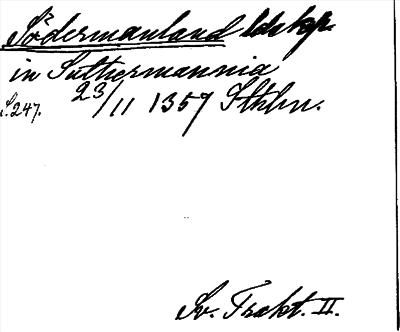 Södermanland ldskp.
in Suthermannia
S. 247. 23/11 1357 Sthlm.
Sv. Trakt. II.